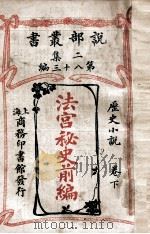 說部叢書
二集
第八十三編
歷史小說
卷下
法宮祕史前編
上海
商務印書館發行